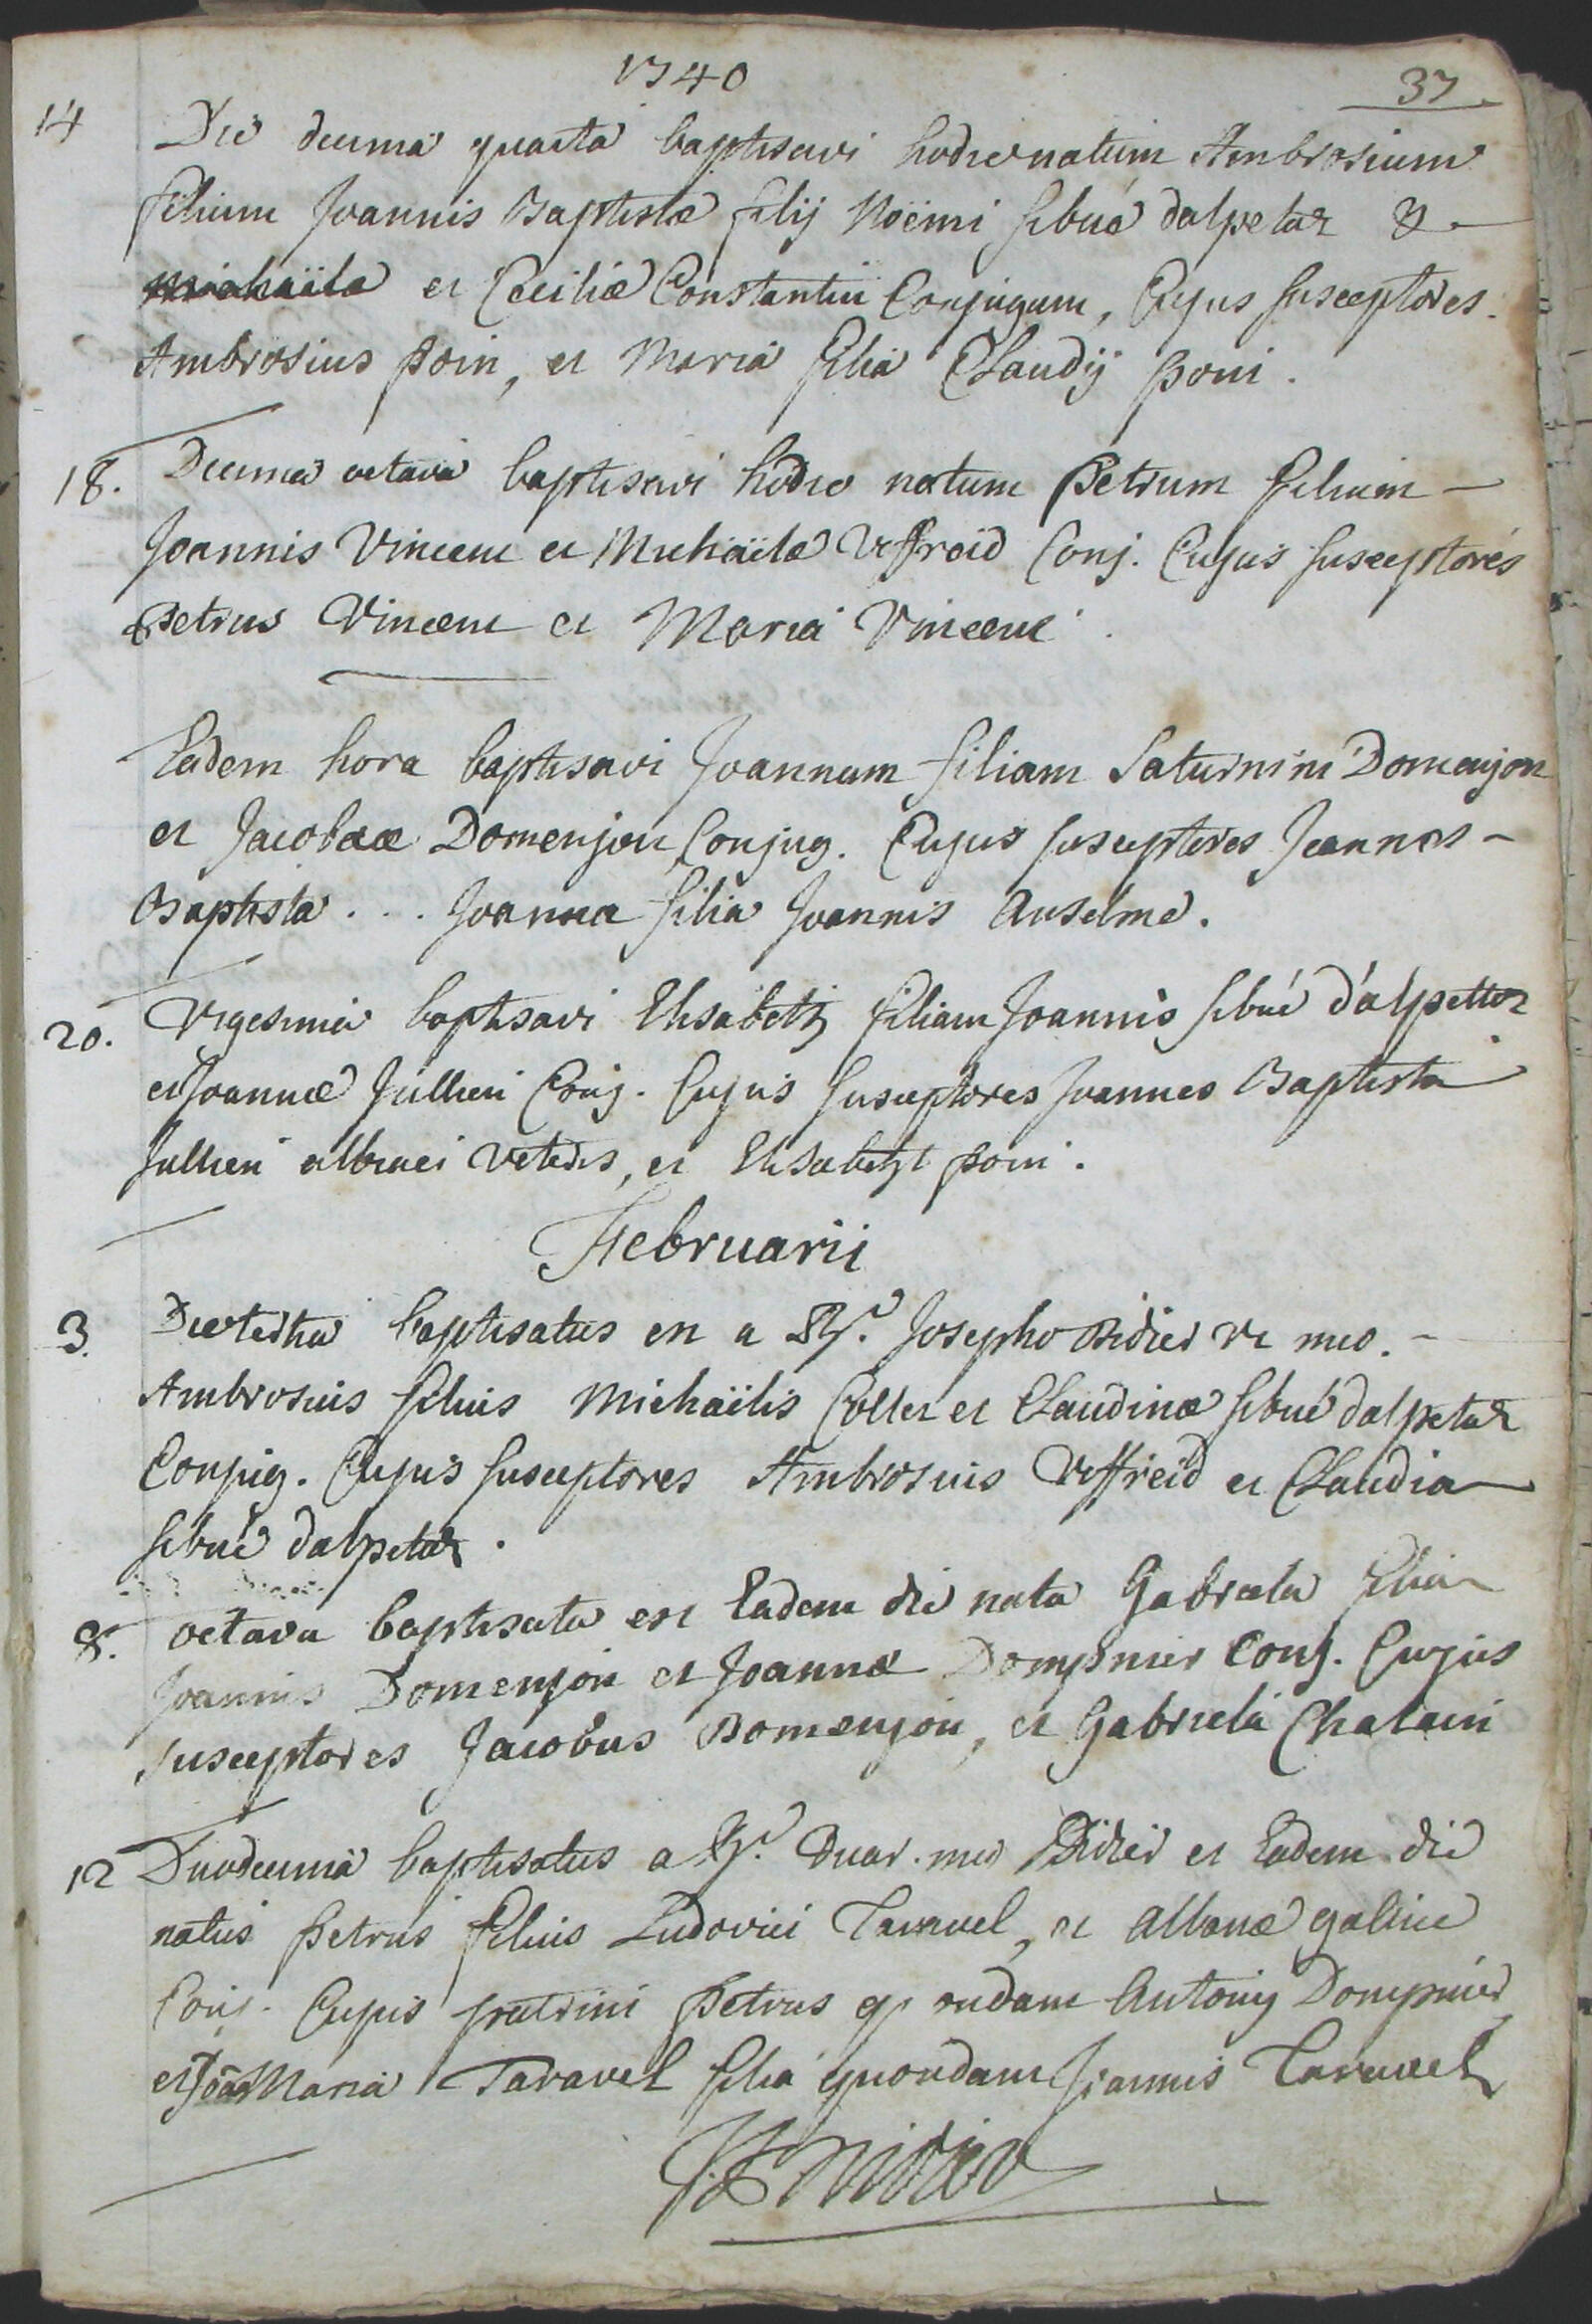 1740
37
14 Die decima quarta baptisavi hodie natum Ambrosium
filium Joannis Baptistæ filij Noëmi sibué dalpetaz &
michaïla et Ceciliæ Constantin Conjugum, Cujus susceptores
Ambrosius poin, et Maria filia Claudij poni.
18. Decima octava baptisavi hodie natum Petrum filium
Joannis Vincent et Michaïlæ Viffreid Conj. Cujus susceptores
Petrus Vincent et Maria Vincent
Eadem hora baptisavi Joannam filiam Saturnini Domenjon
et Jacobææ Domenjon Conjug. Cujus susceptores Joannes
Baptista . . . Joanna filia Joannis Anselme.
20. Vigesima baptisavi Elisabeth filiam Joannis sibué d'alpettaz
et Joannæ Jullien Conj. Cujus susceptores Joannes Baptista
Jullien veteris, et Elisabeth poin.
Februarii
3. Die tertia baptisatus est a Josepho Didier meo.
Ambrosius filius Michaïlis Collet et Claudinæ sibué dalpetaz
Conjug. Cujus susceptores Ambrosius Viffreid et Claudia
sibué dalpetaz.
8. octava baptisata est Eadem die nata Gabriela filia
Joannis Domenjon et Joannæ Dompnier Conj. Cujus
susceptores Jacobus Domenjon, et Gabriela Chatain
12 Duodecima baptisatus a meo Didier et Eadem die
natus Petrus filius Ludovici Taravel, et Albanæ galice
Conj. Cujus patrini Petrus q ondam Antonij Dompnier
et Maria Taravel filia quondam Joannis Taravel
Didier